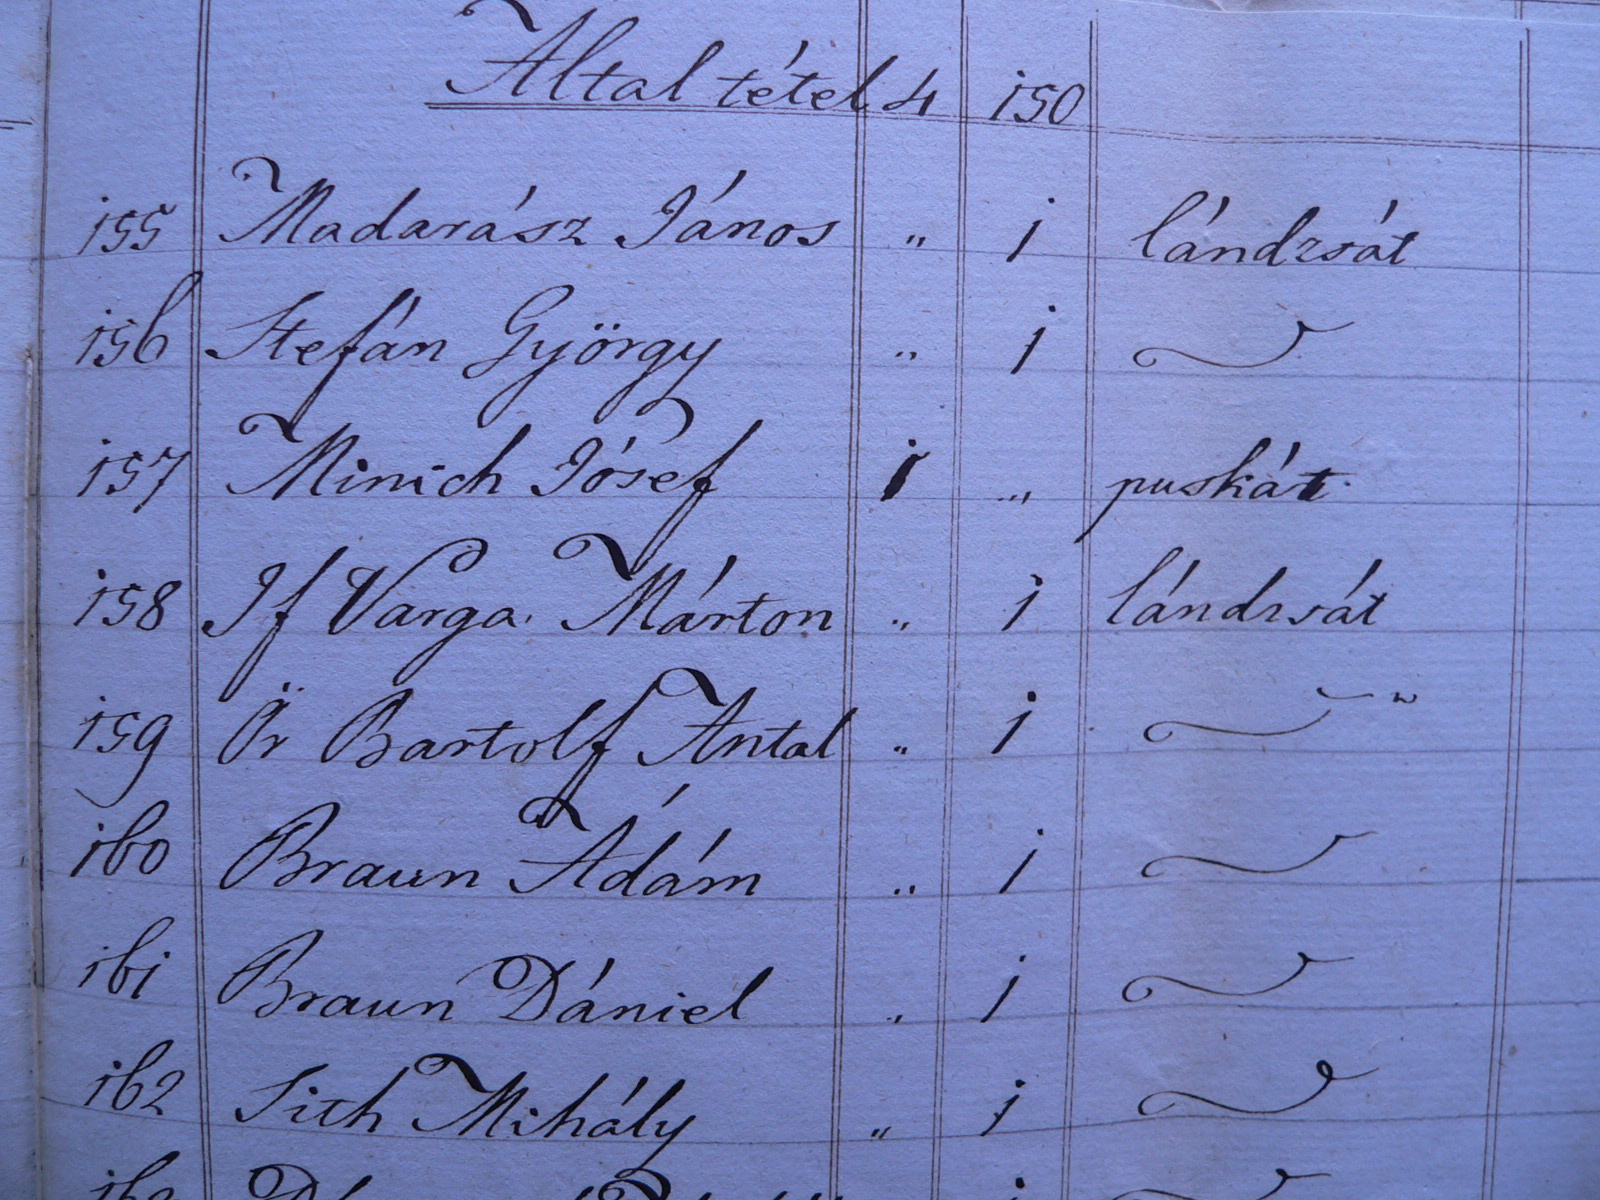 Által tétel 4 150
155 Madarász János " 1 lándzsát
156 Stefán György " 1
157 Minich Jósef 1 " puskát
158 If Varga Márton " 1 lándzsát
159 Ör Bartolf Antal " 1 "
160 Braun Ádám " 1
161 Braun Dániel " 1
162 Sith Mihály " 1